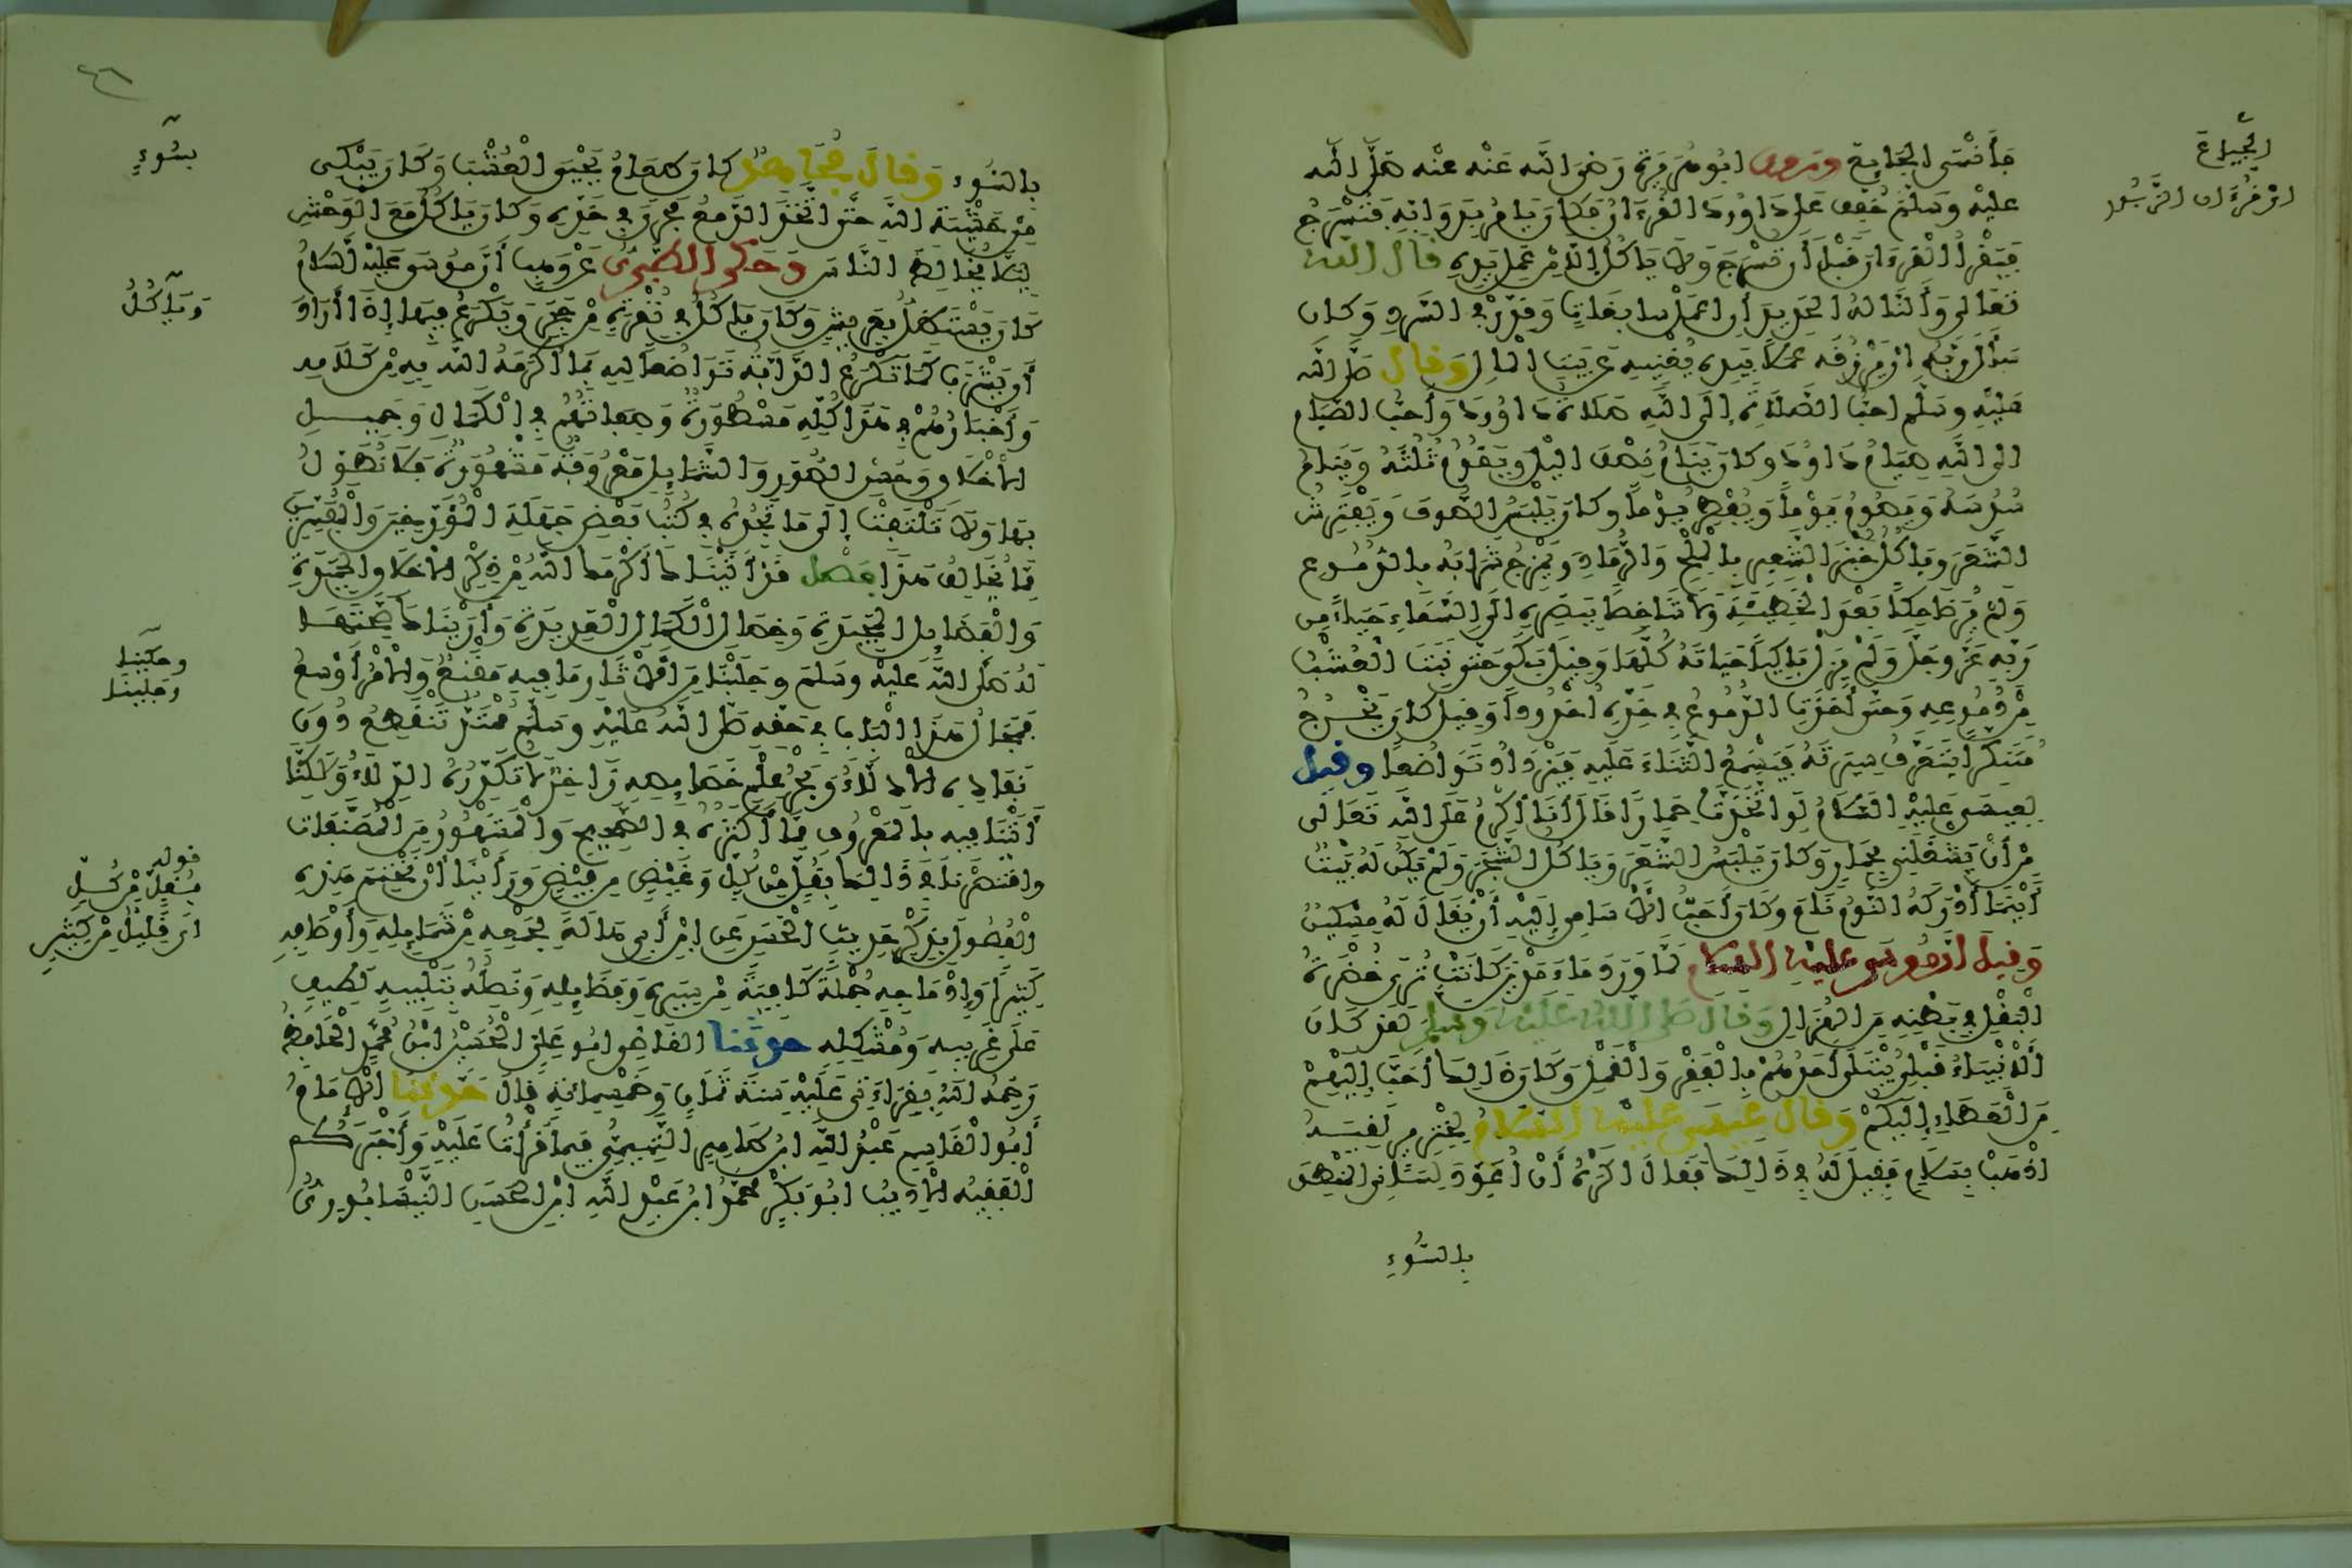 الجياع
اي قراءة الزبور
فأنسى الجايع وروى ابو هريرة رضي الله عنه عنه صلى الله
عليه وسلم خفف على داوود القرءان فكان يامر بدوابه فتسرج
فيقرأ القرءان قبل أن تسرج ولا ياكل إلا من عمل يده قال الله
تعالى وألنا له الحديد أن اعمل سابغات وقدر في السرد وكان
سأل ربه ان يرزقه عملا بيده يغنيه عن بيت المال وقال صلى الله
عليه وسلم احب الصلاة إلى الله صلاة داوود وأحب الصيام
الى الله صيام داوود وكان ينام نصف اليل ويقوم ثلثه وينام
سدسه ويصوم يوما ويفطر يوما وكان يلبس الصوف ويفترش
الشعر وياكل خبز الشعير بالملح والرماد ويمزج شرابه بالدموع
ولم ير ضاحكا بعد الخطيئة ولا شاخصا ببصره الى السماء حياء من
ربه عز وجل ولم يزل باكيا حياته كلها وقيل بكى حتى نبت العشب
من دموعه وحتى أخذت الدموع في خده اخدودا وقيل كان يخرج
متنكرا يتعرف سيرته فيسمع الثناء عليه فيزداد تواضعا وقيل
لعيسى عليه السلام لو اتخذت حمارا قال أنا أكرم على الله تعالى
من أن يشغلني بحمار وكان يلبس الشعر وياكل الشجر ولم يكن له بيت
أينما أدركه النوم نام وكان أحب الاسامي إليه أن يقال له مسكين
وقيل ان موسى عليه السلام لما ورد ماء مدين كانت ترى خضرة
البقل في بطنه من الهزال وقال صلى الله عليه وسلم لقد كان
الأنبياء قبلي يبتلى أحدهم بالفقر والقمل وكان ذالك أحب إليهم
من العطاء إليكم وقال عيسى عليه السلام لخنزير لقيه
اذهب بسلام فقيل له في ذالك فقال اكره أن أعود لساني المنطق
بالسوء
٤٦
بالسوء وقال مجاهد كان طعام يحيى العشب وكان يبكي
من خشية الله حتى اتخذ الدمع مجرى في خده وكان ياكل مع الوحش
ليلا يخالط الناس وحكى الطبري عن وهب أن موسى عليه السلام
كان يستظل بعريش وكان ياكل في نقرة من حجر ويكرع فيها إذا أراد
أن يشرب كما تكرع الدابة تواضعا لله بما أكرمه الله به من كلامه
وأخبارهم في هذا كله مسطورة وصفاتهم في الكمال وجميل
الأخلاق وحسن الصور والشمايل معروفة مشهورة فلا نطول
بها ولا تلتفت إلى ما تجده في كتب بعض جهلة المؤرخين والمفسرين
مما يخالف هذا فصل قد أتيناك أكرمك الله من ذكر الأخلاق الحميدة
والفضايل المجيدة وخصال الكمال العديدة وأريناك صحتها
له صلى الله عليه وسلم وجلبنا من الآثار ما فيه مقنع والأمر أوسع
فمجال هذا الباب في حقه صلى الله عليه وسلم ممتد تنقطع دون
نفاده الأدلاء وبحر علم خصايصه زاخر لا تكدره الدلاء ولكنا
أتينا فيه بالمعروف مما أكثره في الصحيح والمشهور من المصنفات
واقتصرنا في ذالك بقل من كل وغيض من فيض ورأينا أن نختم هذه
الفصول بذكر حديث الحسن عن ابن أبي هالة لجمعه من شمايله وأوصافه
كثيرا وإدماجه جملة كافية من سيره وفضايله ونصله بتنبيه لطيف
على غريبه ومشكله حدثنا القاضي ابو علي الحسين ابن محمد الحافظ
رحمه الله بقراءتي عليه سنة ثمان وخمسمائة قال حدثنا الامام
أبو القاسم عبد الله ابن طاهر التميمي فيما قرأت عليه وأخبركم
الفقيه الأديب ابو بكر محمد ابن عبد الله ابن الحسن النيسابوري
بسوء
وياكل
وحكينا
وجلبنا
قوله
بقل من كل
اي قليل من كثير